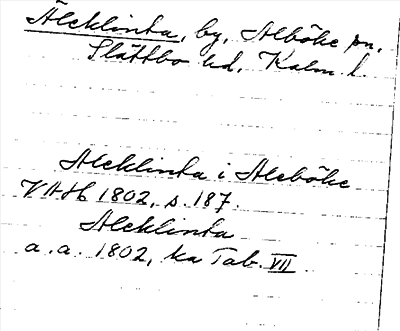 Äleklinta, by, Alböke sn,
Slättbo hd, Kalm. l.
Aleklinta i Aleböke
VAH 1802, s. 187.
Aleklinta
a. a. 1802, ka Tab. VII